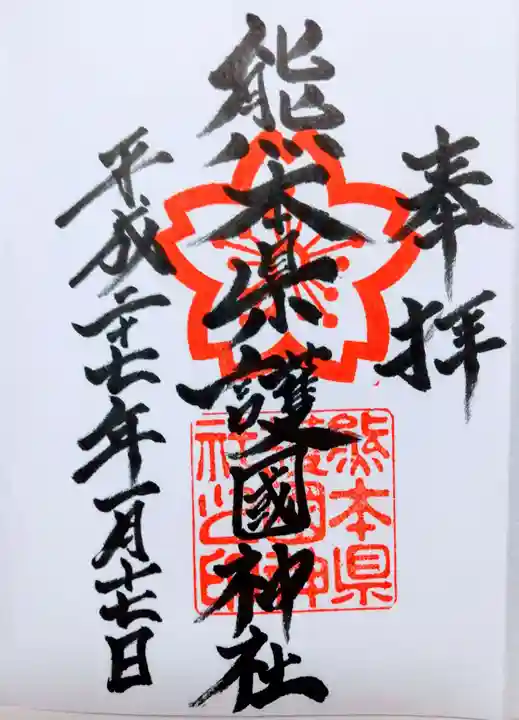 奉拝
熊本県護國神社
熊本県
護国神
社之印
平成二十七年一月十七日